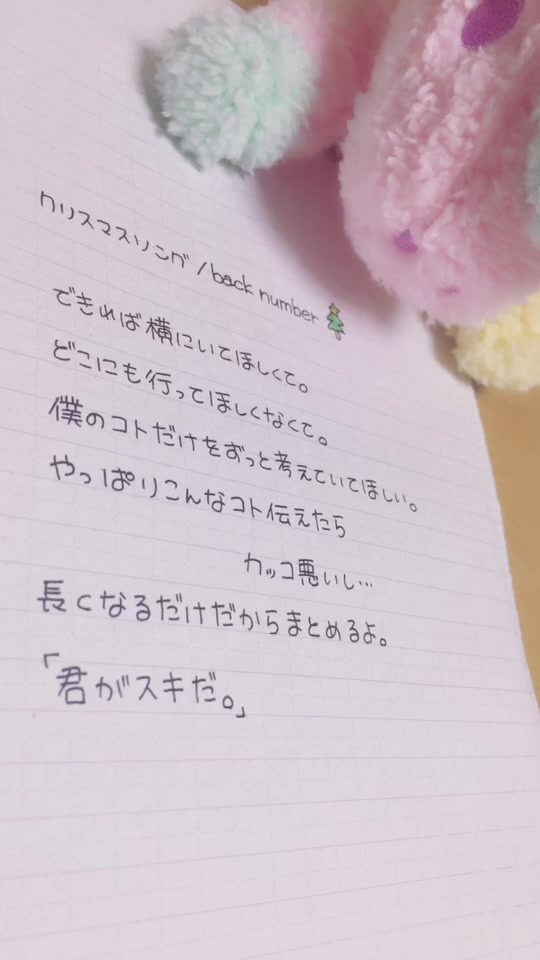 クリスマスソング/back number
できれば横にいてほしくて。
どこにも行ってほしくなくて。
僕のコトだけをずっと考えていてほしい。
やっぱりこんなコト伝えたら
カッコ悪いし…
長くなるだけだからまとめるよ。
「君がスキだ。」